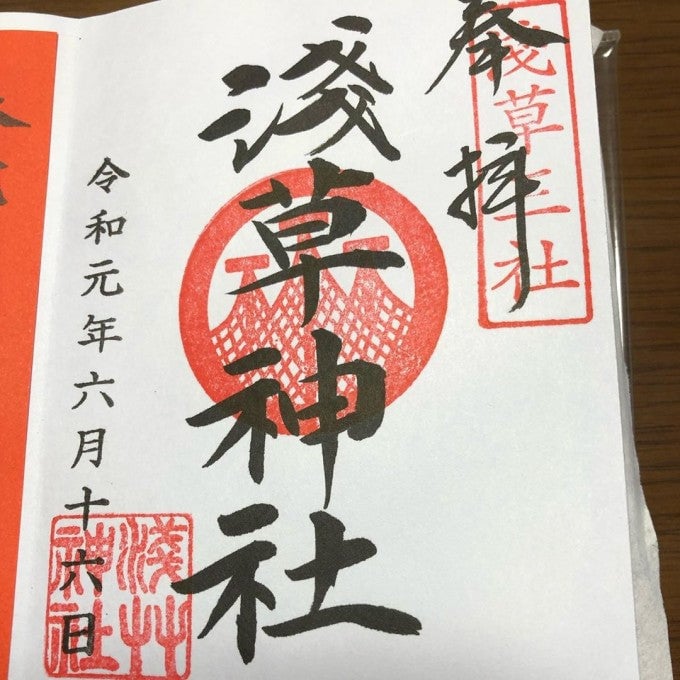 奉拝
淺草三社
淺草神社
令和元年六月十六日
淺草神社